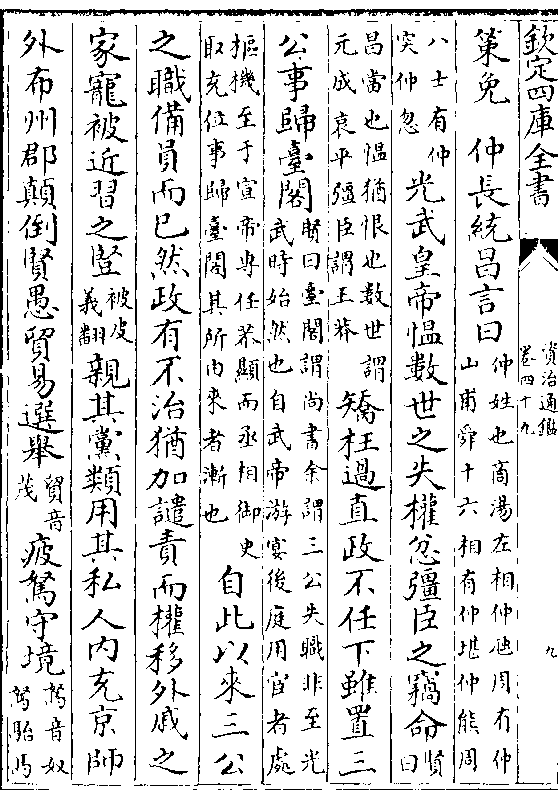 欽定四庫全書
資治通鑑
卷四十九
九
策免　仲長統昌言曰
仲姓也商湯左相仲虺周有仲
山甫舜十六相有仲堪仲能周
八士有仲
突仲忽
光武皇帝愠數世之失權忿彊臣之竊命
賢
曰
昌當也愠猶恨也數世謂
元成哀平彊臣謂王莽
矯枉過直政不任下雖置三
公事歸臺閣
賢曰臺閣謂尚書余謂三公失職非至光
武時始然也自武帝游宴後庭用宦者處
樞機至于宣帝專任恭顯而丞相御史
取充位事歸臺閣其所由來者漸也
自此以來三公
之職備員而已然政有不治猶加譴責而權移外戚之
家寵被近習之豎
被皮
義翻
親其黨類用其私人内充京師
外布州郡顛倒賢愚貿易選舉
貿音
茂
疲駑守境
駑音奴
駑駘馬